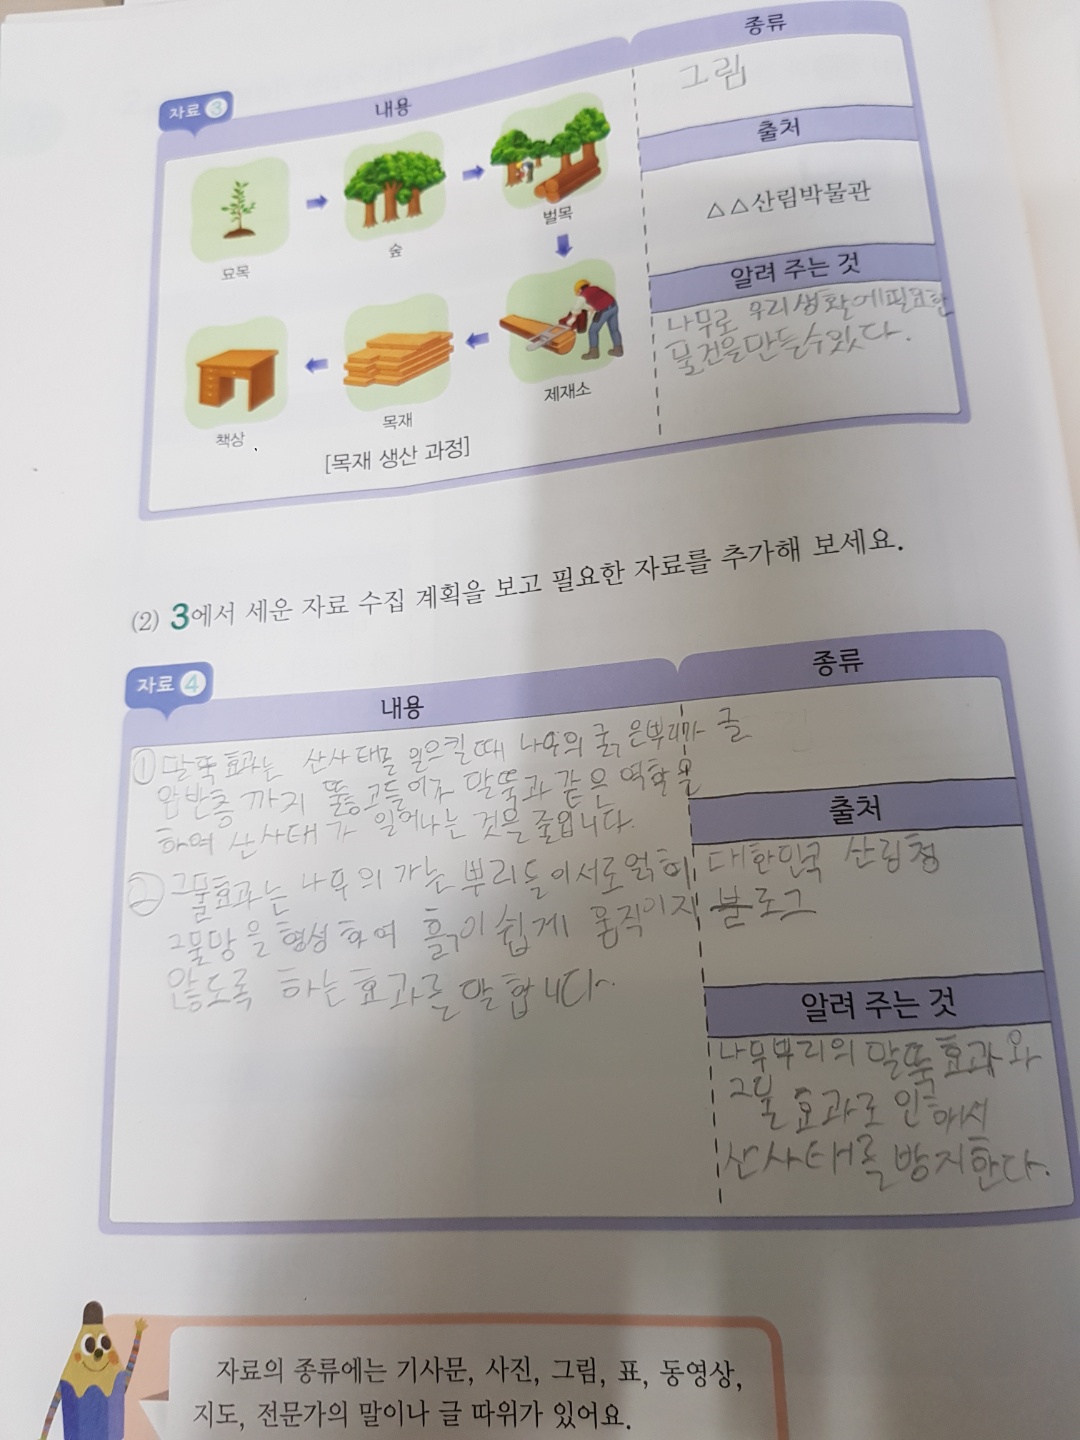 자료 3
내용
종류
그림
출처
△△산림박물관
알려 주는 것
나무로 우리생활에필요한
물건을만들수있다.
묘목
숲
벌목
책상
목재
제재소
[목재 생산 과정]
(2) 3에서 세운 자료 수집 계획을 보고 필요한 자료를 추가해 보세요.
자료 4
내용
종류
① 말뚝효과는 산사태를 일으킬때 나무의 굵은뿌리가
암반층 까지 뚫고들어가 말뚝과 같은 역할을
하여 산사태가 일어나는 것을 줄입니다.
② 그물효과는 나무의 가는 뿌리들이서로얽혀
그물망을형성하여 흙이 쉽게 움직이지
않도록 하는효과를말합니다.
글
출처
대한민국 산림청
블로그
알려 주는 것
나무뿌리의 말뚝효과와
그물효과로 인해서
산사태를방지한다.
자료의 종류에는 기사문, 사진, 그림, 표, 동영상,
지도, 전문가의 말이나 글 따위가 있어요.